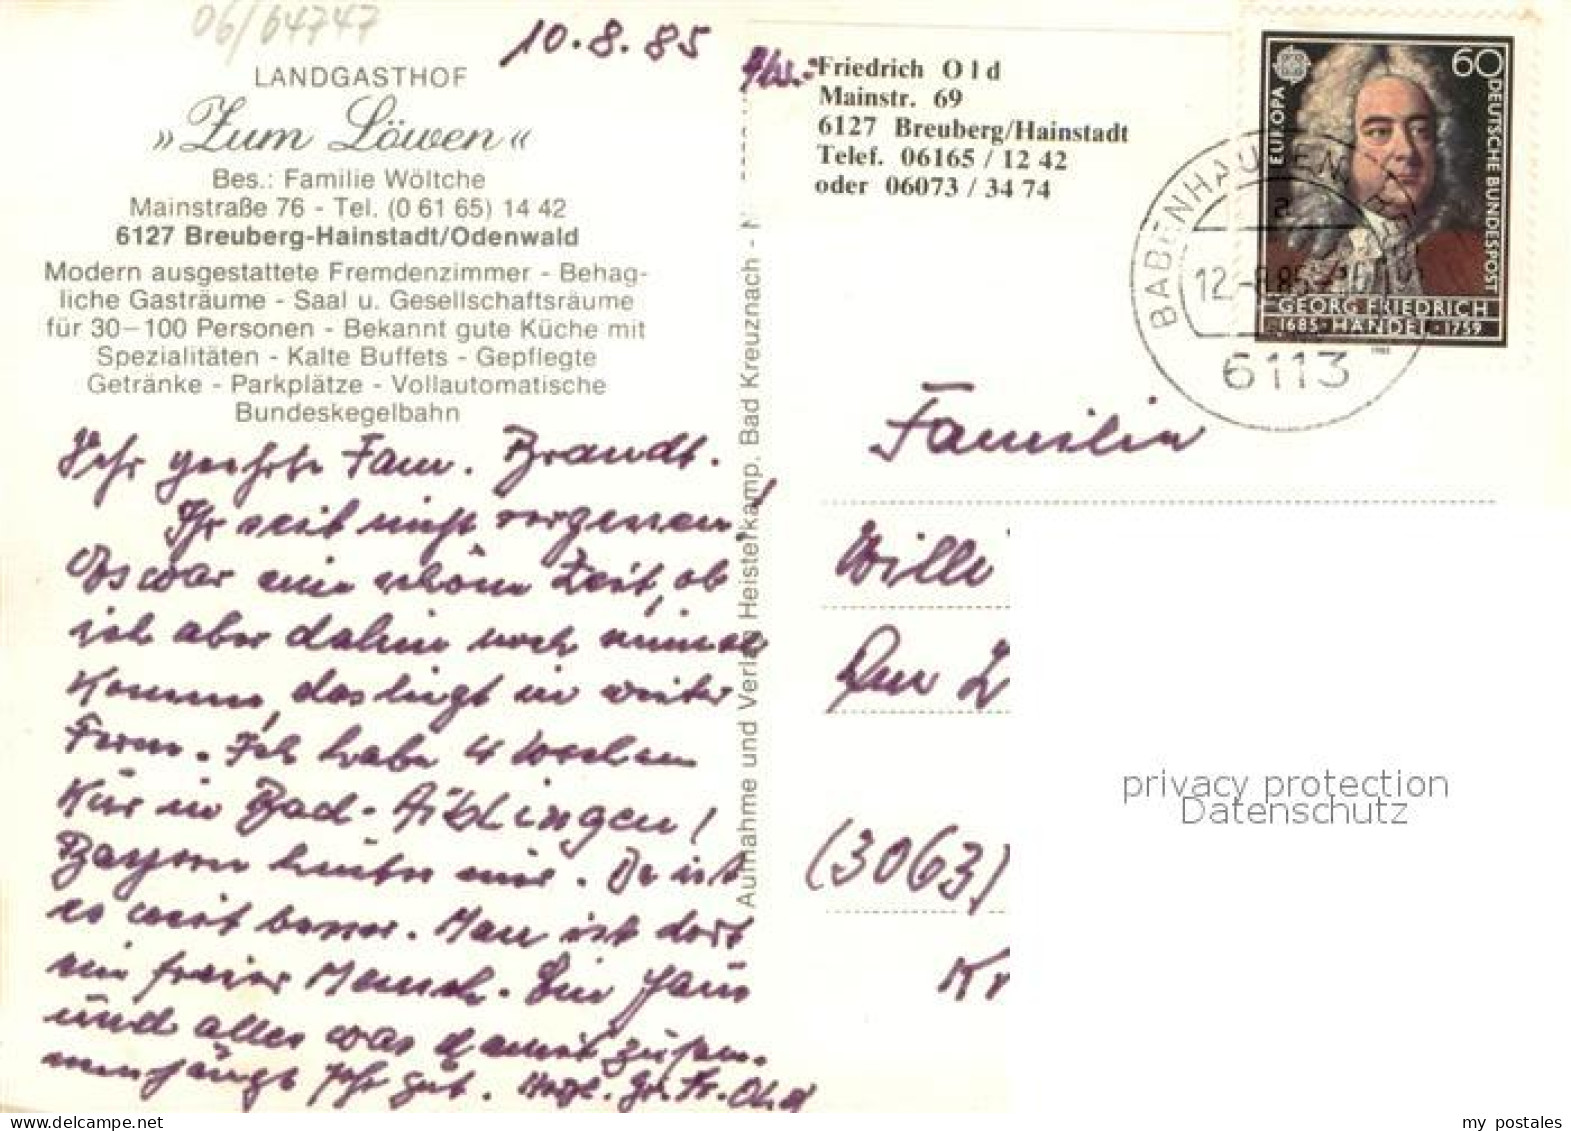 06/64747
10.8.85
LANDGASTHOF
»Zum Löwen«
Bes.: Familie Wöltche
Mainstraße 76 - Tel. (0 61 65) 14 42
6127 Breuberg-Hainstadt/Odenwald
Modern ausgestattete Fremdenzimmer - Behag-
liche Gasträume - Saal u. Gesellschaftsräume
für 30–100 Personen - Bekannt gute Küche mit
Spezialitäten - Kalte Buffets - Gepflegte
Getränke - Parkplätze - Vollautomatische
Bundeskegelbahn
Sehr geehrte Fam. Brandt.
Ihr seit nicht vergessen!
Es war eine schöne Zeit, ob
ich aber dahin noch einmal
komme, das liegt in weiter
Ferne. Ich habe 4 Wochen
Kür in Bad-Aiblingen!
Bayern hinter mir. Da ist
es weit besser. Man ist dort
ein freier Mensch. Ein Haus
und alles was damit zusam-
menhängt sehr gut. Herzl. Gr. Fr. Old
Aufnahme und Verlag Heisterkamp, Bad Kreuznach - N
Abs.: Friedrich Old
Mainstr. 69
6127 Breuberg/Hainstadt
Telef. 06165 / 12 42
oder 06073 / 34 74
EUROPA
60
DEUTSCHE BUNDESPOST
GEORG FRIEDRICH
1685 · HÄNDEL · 1759
1985
BABENHAUSEN
a
12.-8.85
6113
Familie
Willi
(3063)
Kr
privacy protection
Datenschutz
my_postales